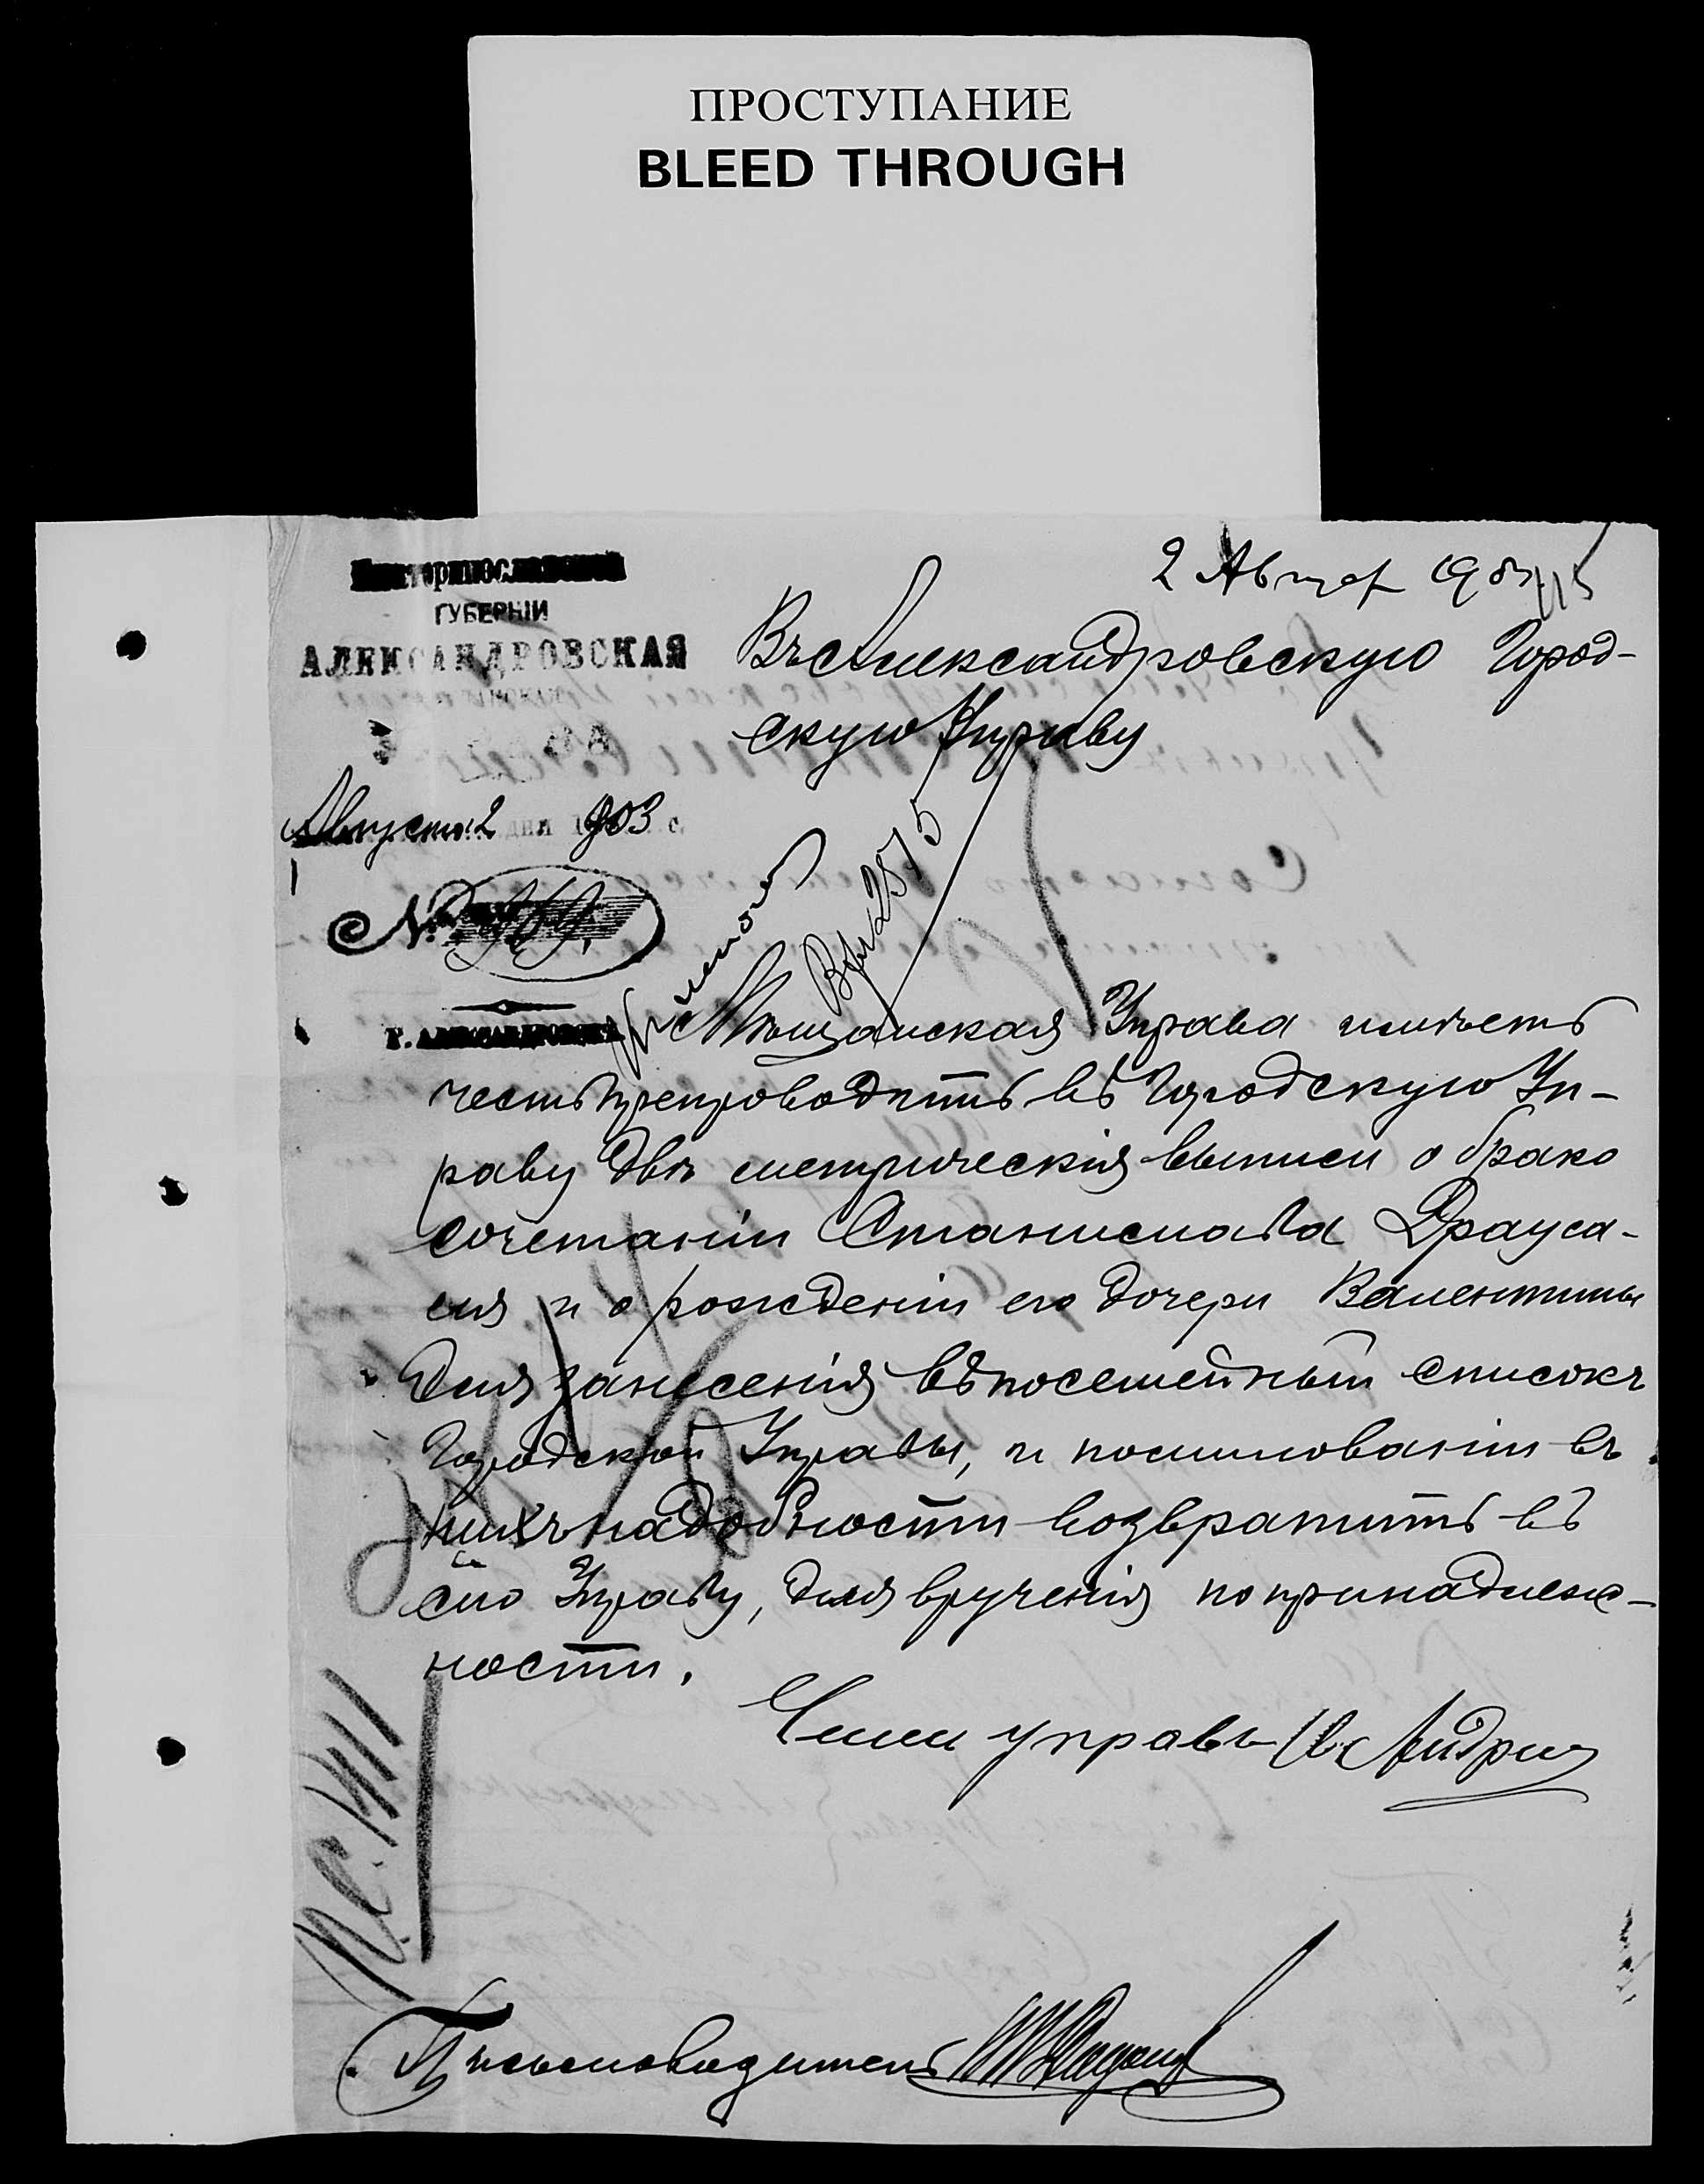 ПРОСТУПАНИЕ
BLEED THROUGH
2 Август 1903
115
Екатеринославской
ГУБЕРНІИ
АЛЕКСАНДРОВСКАЯ
Въ Александровскую Город-
скую Управу
Августа 2 дня 1903 г.
№
Г. АЛЕКСАНДРОВСКЪ
Мѣщанская Управа имѣетъ
честь препроводить въ Городскую Уп-
раву двѣ метрическія выписи о брако
сочетаніи Станислава Драуса-
ля и о рожденіи его дочери Валентины
для занесенія въ посемейный списокъ
Городской Управы, и по минованіи въ
нихъ надобности возвратить въ
сію Управу, для вручения по принадлеж-
ности.
Член управы
Письмоводитель